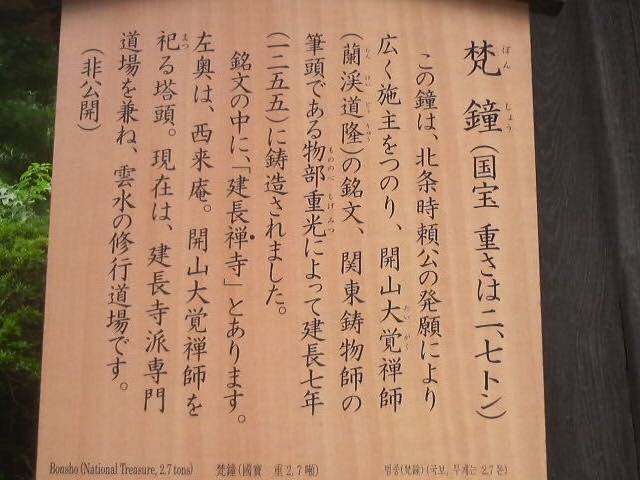 梵鐘(国宝 重さは二、七トン)
この鐘は、北条時頼公の発願により
広く施主をつのり、開山大覚禅師
(蘭渓道隆)の銘文、関東鋳物師の
筆頭である物部重光によって建長七年
(一二五五)に鋳造されました。
銘文の中に、「建長禅寺」とあります。
左奥は、西来庵。開山大覚禅師を
祀る塔頭。現在は、建長寺派専門
道場を兼ね、雲水の修行道場です。
(非公開)
Bonsho (National Treasure, 2.7 tons) 梵鐘(國寶 重 2.7噸) 범종(梵鐘)(국보, 무게는 2.7 톤)